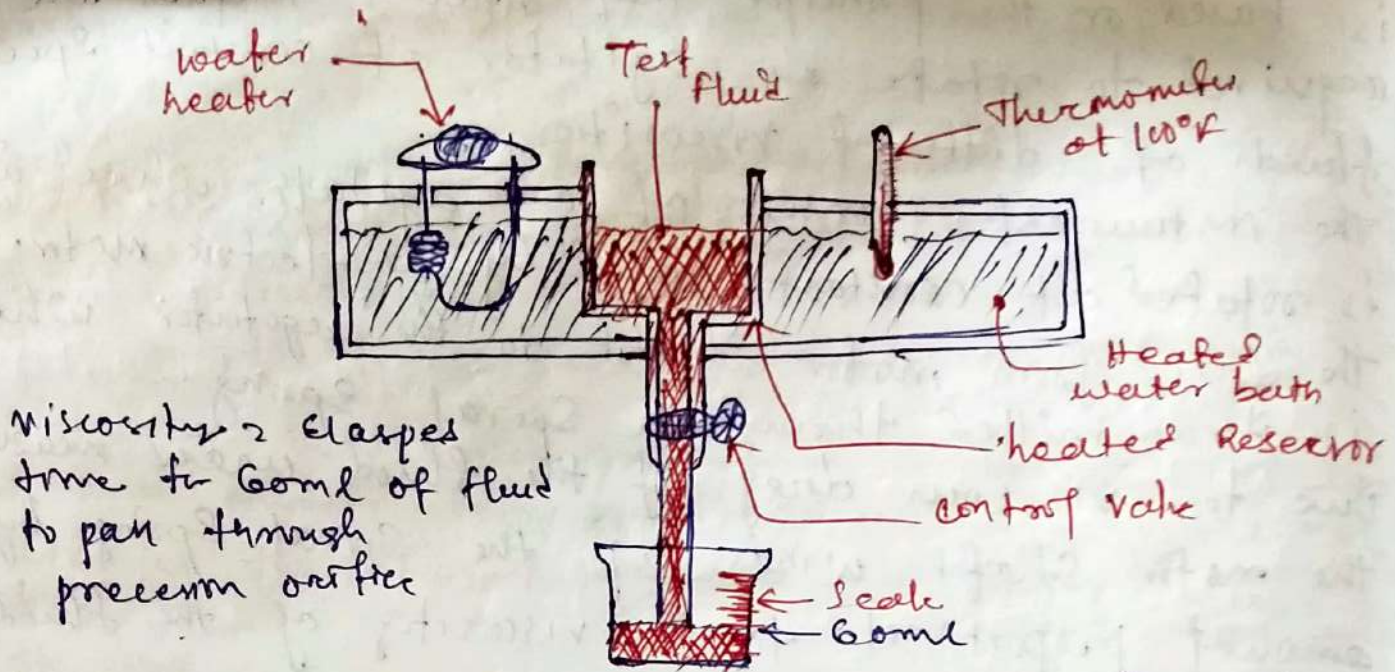 water
heater
Test
fluid
Thermometer
at 100°F
Heated
water bath
heated Reservor
control valve
Scale
60ml
viscosity = Elaspes
time for 60ml of fluid
to pass through
precesion orifice